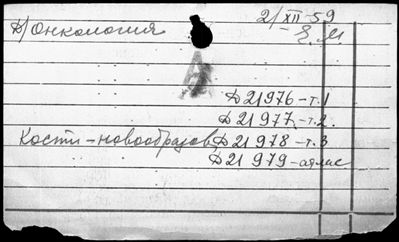 Д/Онкология
2/XII 59
Е.М.
А
Д 21976-т.1
Д 21977-т.2.
Кости-новообразов. Д 21978-т.3
Д 21979-атлас